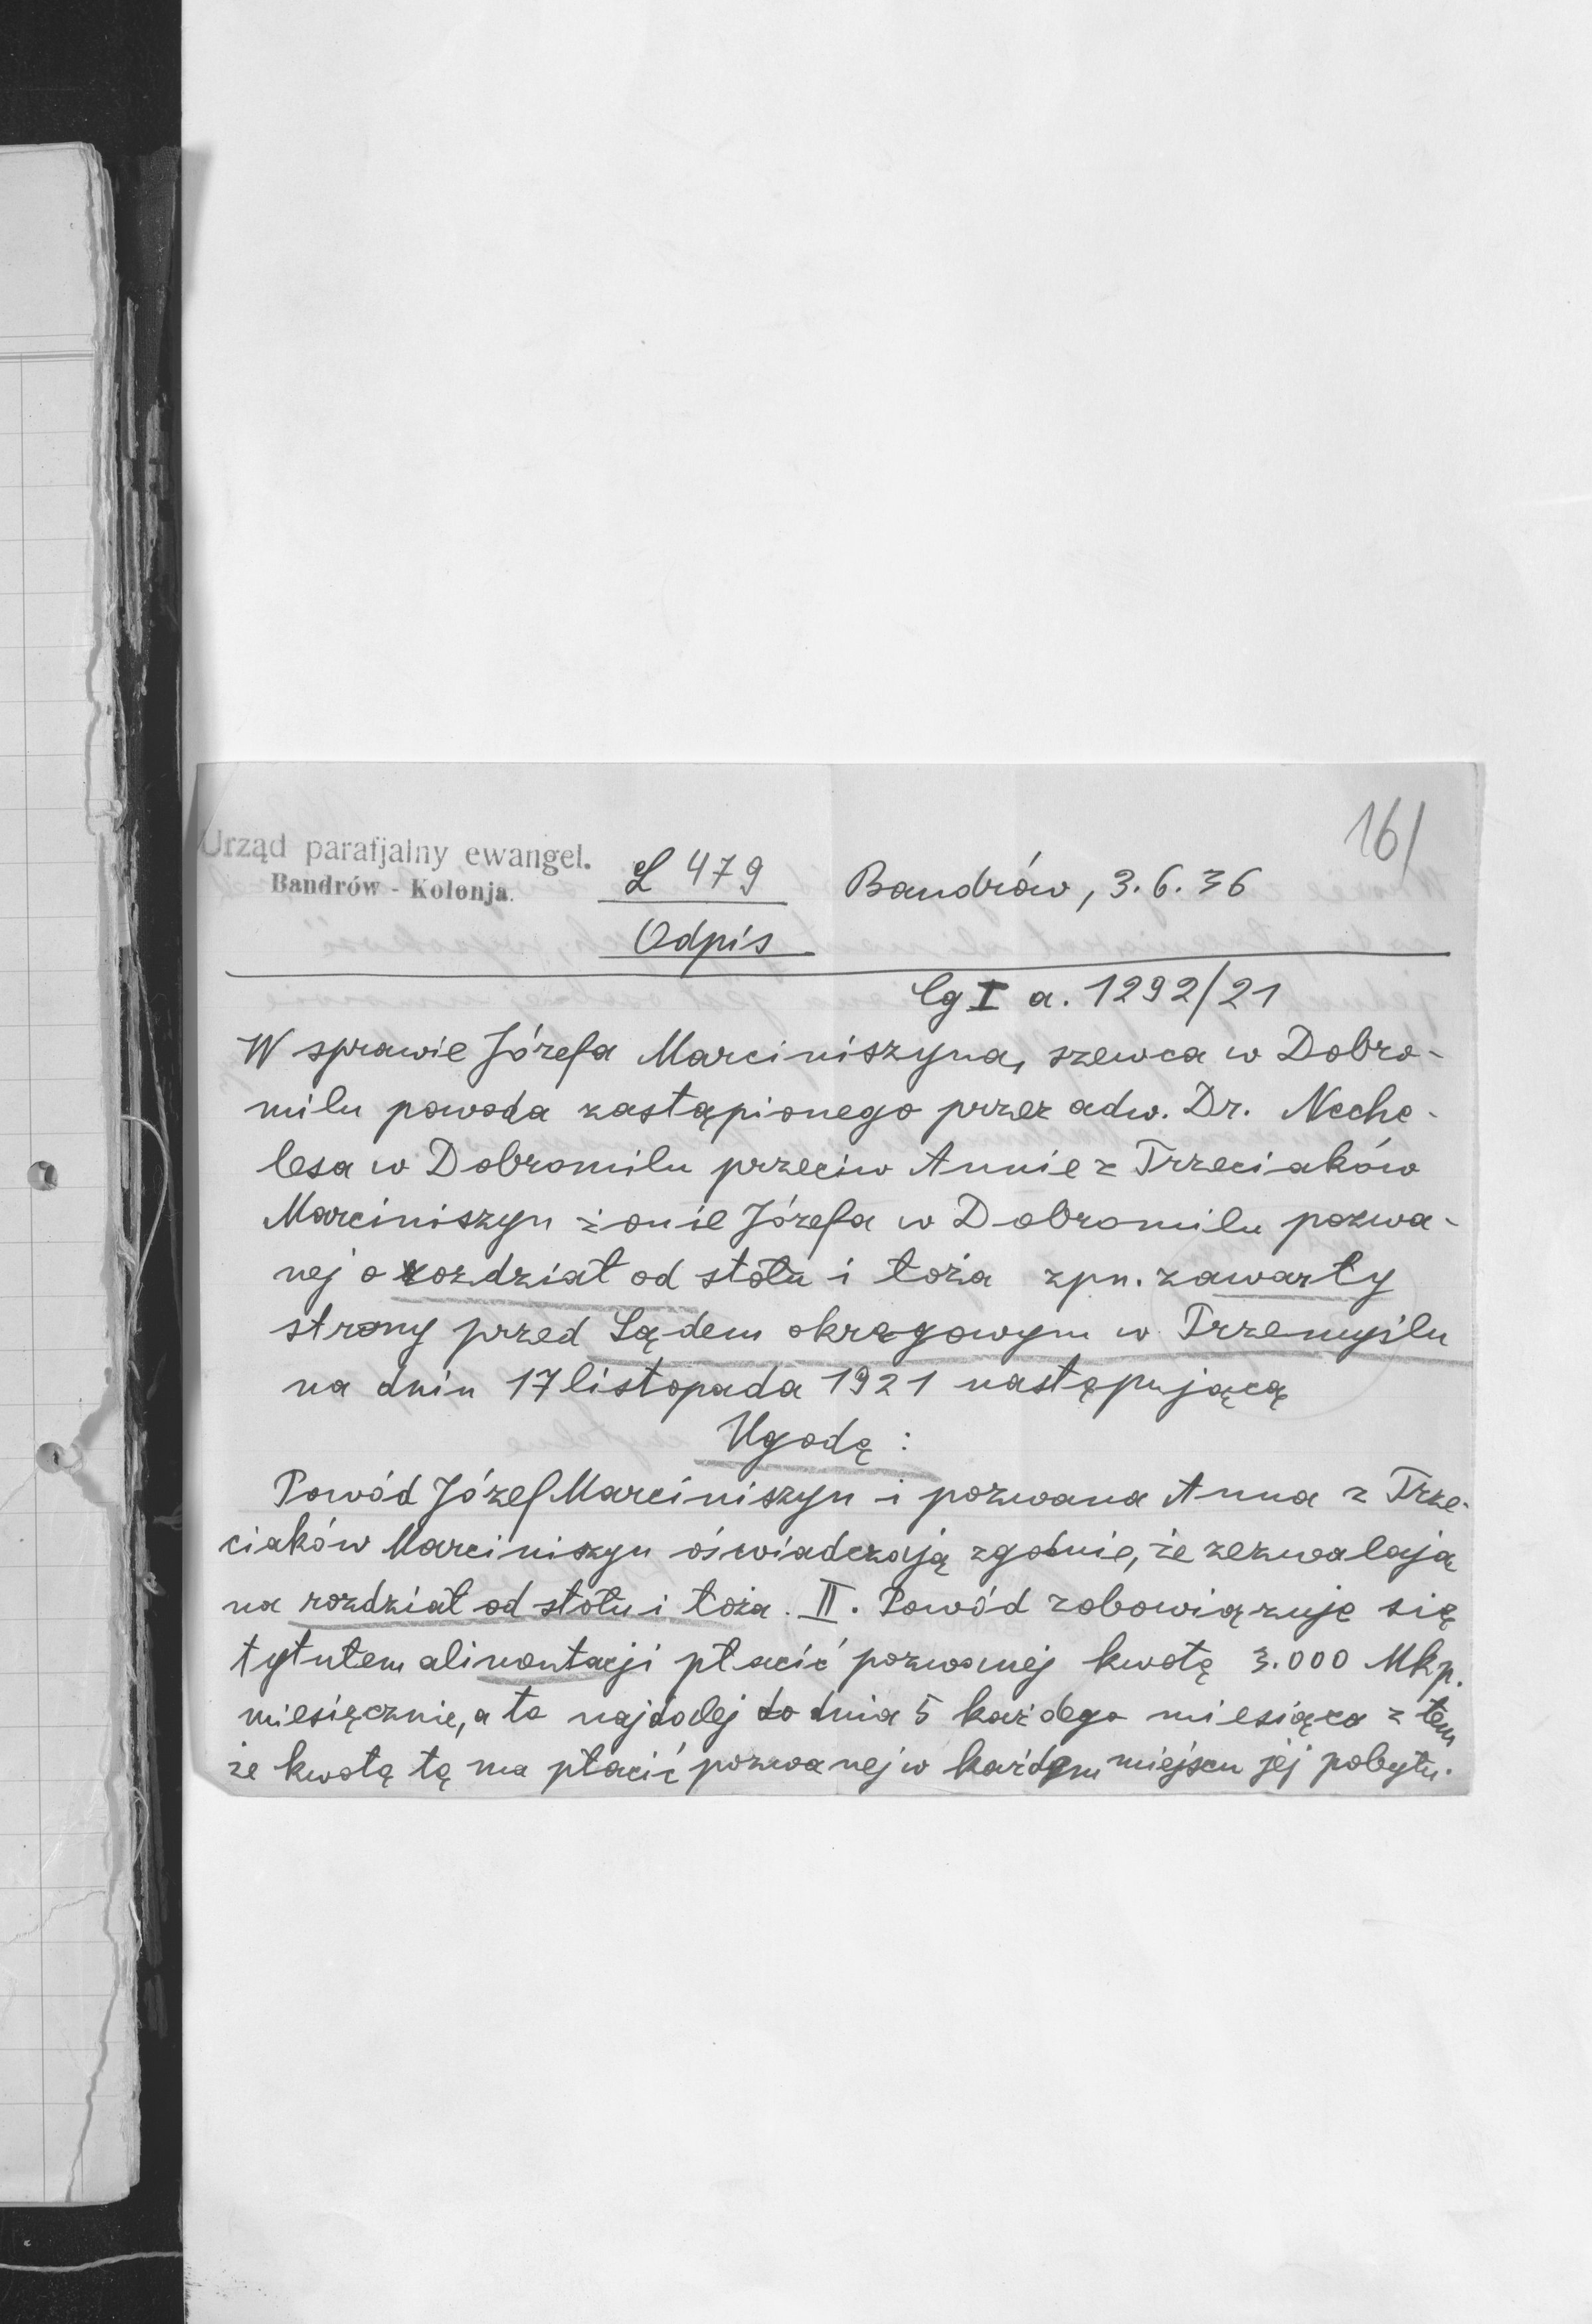 161
Urząd parafjalny ewangel.
Bandrów - Kolonja.
L 479
Bandrów, 3.6.36
Odpis
Cg I a. 1292/21
W sprawie Józefa Marciniszyna, szewca w Dobro-
milu powoda zastąpionego przez adw. Dr. Neche-
lesa w Dobromilu przeciw Annie z Trzeciaków
Marciniszyn żonie Józefa w Dobromilu pozwa-
nej o rozdział od stołu i łoża zpn. zawarły
strony przed Sądem okręgowym w Przemyślu
na dniu 17 listopada 1921 następującą
Ugodę:
Powód Józef Marciniszyn i pozwana Anna z Trze-
ciaków Marciniszyn oświadczają zgodnie, że zezwalają
na rozdział od stołu i łoża. II. Powód zobowiązuje się
tytułem alimentacji płacić pozwanej kwotę 3.000 Mkp.
miesięcznie, a to najdalej do dnia 5 każdego miesiąca z tem
że kwotę tę ma płacić pozwanej w każdym miejscu jej pobytu.